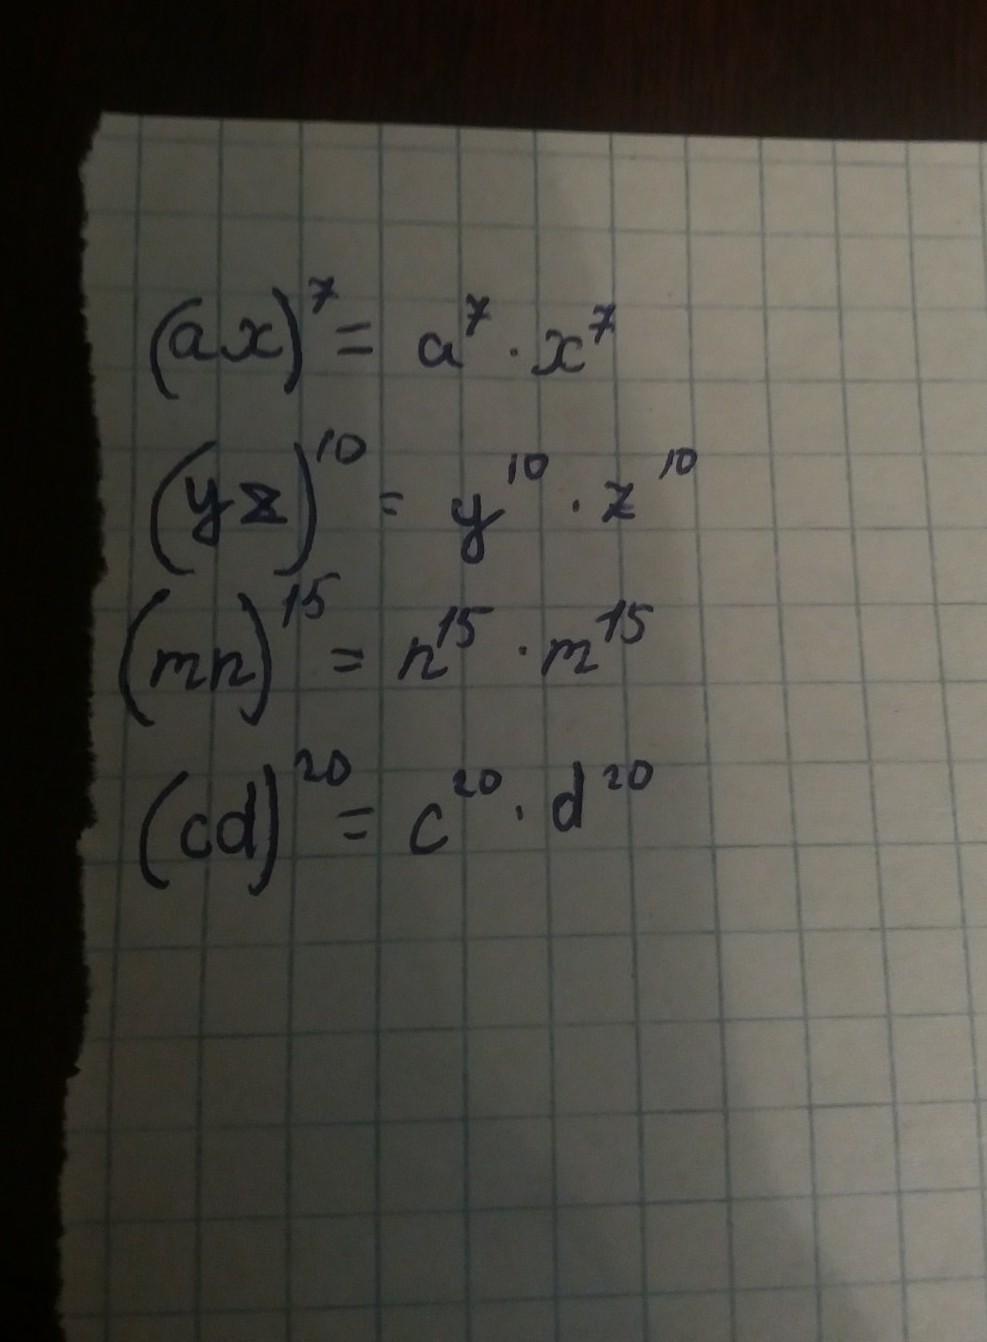 (ax)⁷ = a⁷ · x⁷
(yz)¹⁰ = y¹⁰ · z¹⁰
(mn)¹⁵ = n¹⁵ · m¹⁵
(cd)²⁰ = c²⁰ · d²⁰